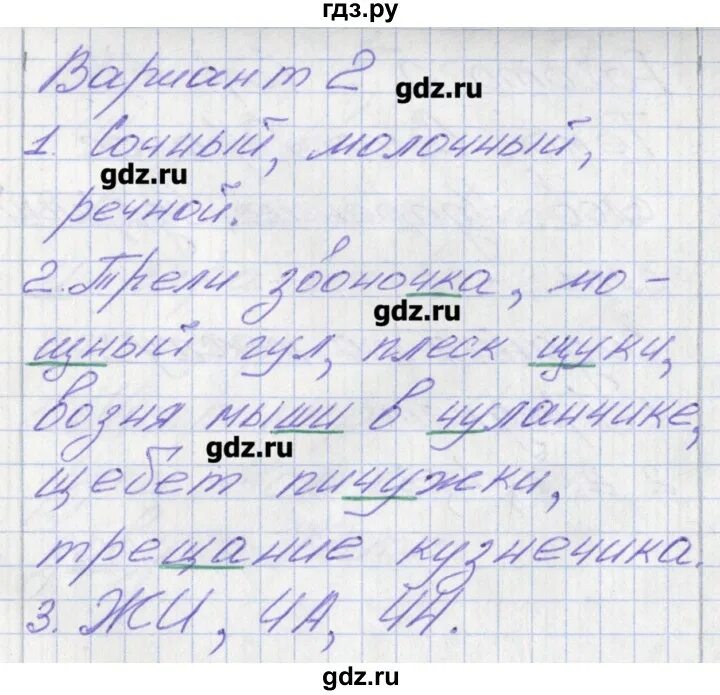 гдз.ру
Вариант 2
gdz.ru
1. Сочный, молочный,
gdz.ru
речной.
2. Трели звоночка, мо-
gdz.ru
щный гул, плеск щуки,
возня мыши в чуланчике,
gdz.ru
щебет пичужки,
трещание кузнечика.
3. ЖИ, ЧА, ЧН.
gdz.ru